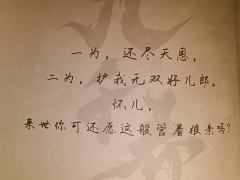 一为，还尽天恩，
二为，护我无双好儿郎。
怀儿，
来世你可还愿这般管着娘亲吗？